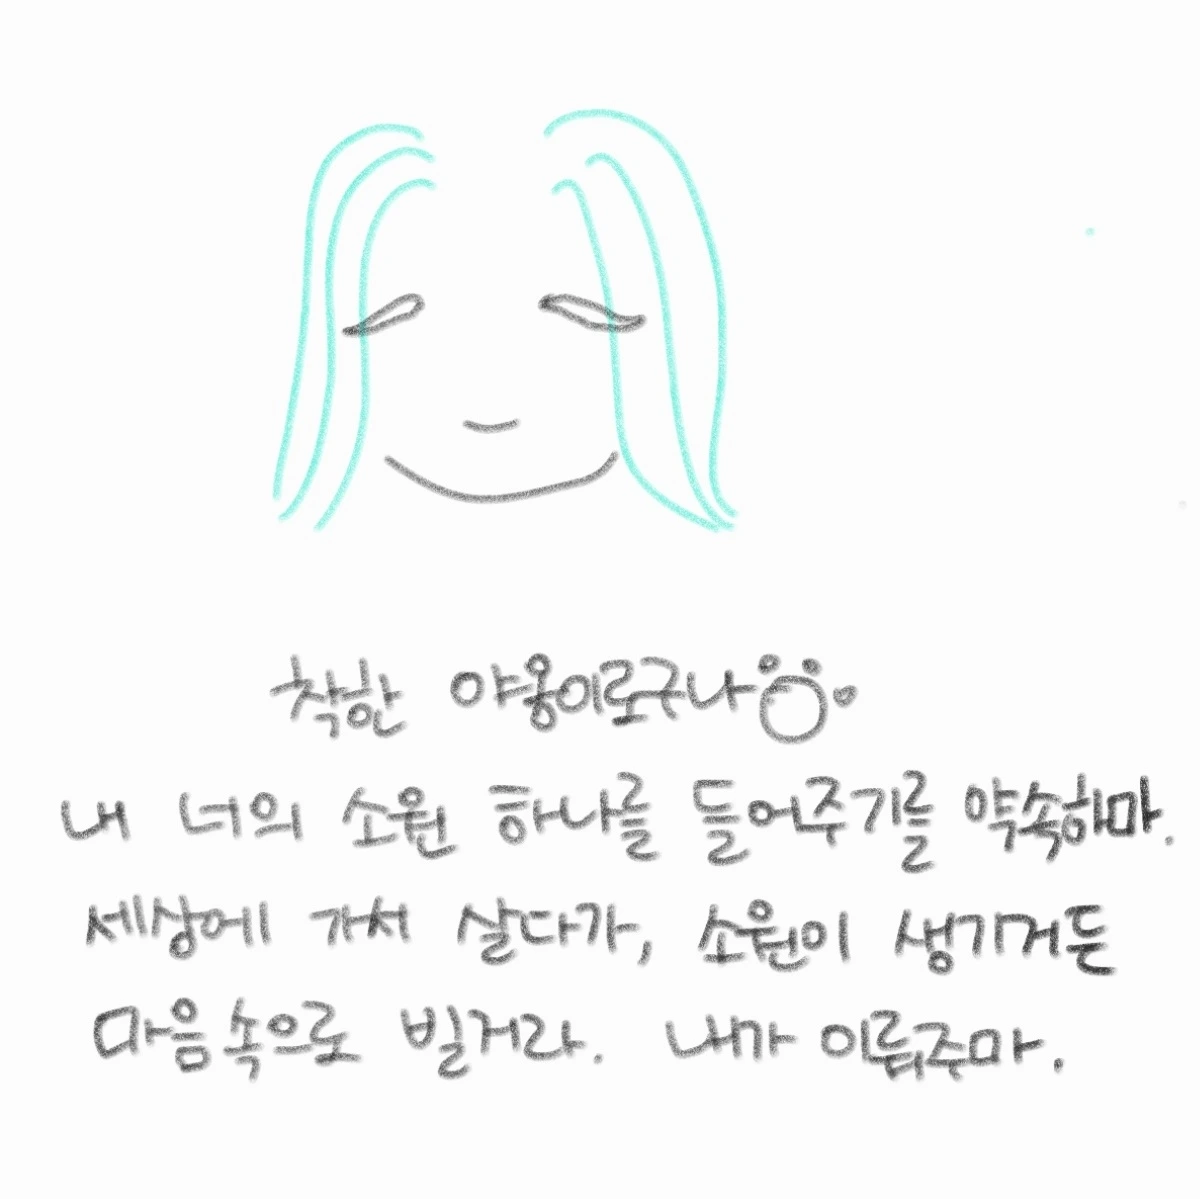 착한 야옹이로구나
내 너의 소원 하나를 들어주기를 약속하마.
세상에 가서 살다가, 소원이 생기거든
마음속으로 빌거라. 내가 이뤄주마.